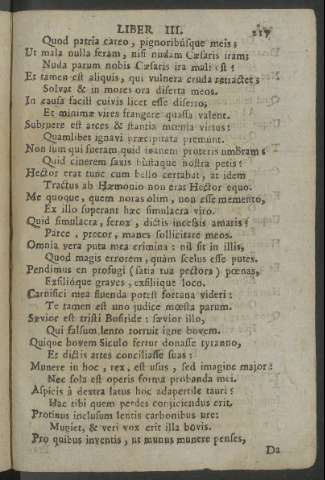 LIBER III. 217
Quod patria careo, pignoribúsque meis;
Ut mala nulla feram, nisi nudam Cæsaris iram;
Nuda parum nobis Cæsaris ira mali est?
Et tamen est aliquis, qui vulnera cruda retractet;
Solvat & in mores ora diserta meos.
In causa facili cuivis licet esse diserto,
Et minimæ vires frangere quassa valent.
Subruere est arces & stantia mœnia virtus:
Quamlibet ignavi præcipitata premunt.
Non sum qui fueram. quid inanem proteris umbram?
Quid cinerem saxis bustaque nostra petis?
Hector erat tunc cum bello certabat, at idem
Tractus ab Hæmonio non erat Hector equo.
Me quoque, quem noras olim, non esse memento,
Ex illo superant hæc simulacra viro.
Quid simulacra, ferox, dictis incessis amaris?
Parce, precor, manes sollicitare meos.
Omnia vera puta mea crimina: nil sit in illis,
Quod magis errorem, quàm scelus esse putes.
Pendimus en profugi (satia tua pectora) pœnas,
Exsilióque graves, exsilíique loco.
Carnifici mea flenda potest fortuna videri:
Te tamen est uno judice mœsta parum.
Sævior es tristi Busiride: sævior illo,
Qui falsum lento torruit igne bovem.
Quique bovem Siculo fertur donasse tyranno,
Et dictis artes conciliasse suas:
Munere in hoc, rex, est usus, sed imagine major:
Nec sola est operis forma probanda mei.
Aspicis à dextra latus hoc adapertile tauri?
Hac tibi quem perdes conjiciendus erit.
Protinus inclusum lentis carbonibus ure:
Mugiet, & veri vox erit illa bovis.
Pro quibus inventis, ut munus munere penses,
Da